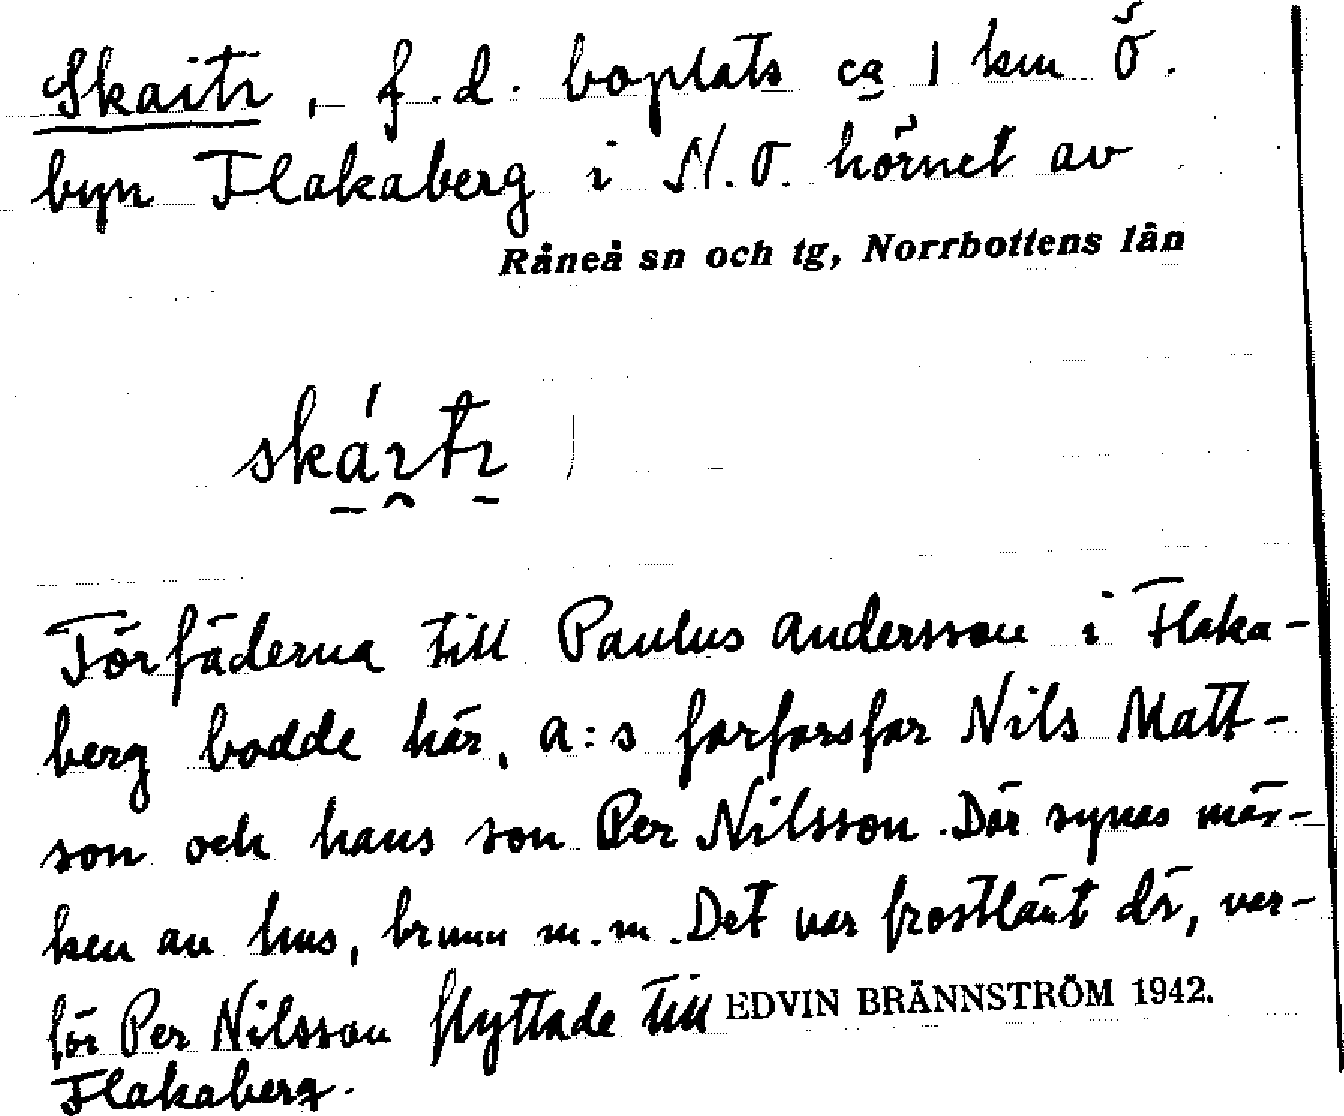 Skaitı, f.d. boplats ca 1 km Ö.
byn Flakaberg i N.O. hörnet av
Råneå sn och tg, Norrbottens län
Förfäderna till Paulus Andersson i Flaka-
berg bodde här, a:s farfarsfar Nils Matt-
son och hans son Per Nilsson. Där synes mär-
ken av hus, brunn m.m. Det var frostlänt där, var-
för Per Nilsson flyttade till
EDVIN BRÄNNSTRÖM 1942.
Flakaberg.